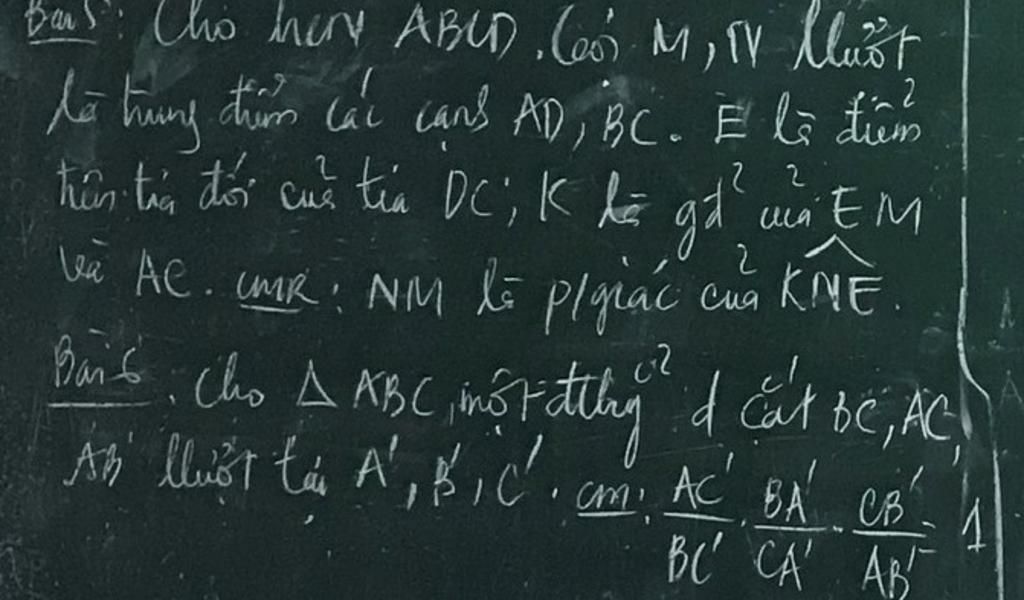 Bài 5: Cho hcn ABCD. Gọi M, N llượt
là trung điểm các cạnh AD, BC. E là điểm
trên tia đối của tia DC; K là gđ của EM
và AC. CMR: NM là p/giác của KNE.
Bài 6. Cho Δ ABC, một đthg d cắt BC, AC,
AB llượt tại A', B', C'. cm: AC'/BC' . BA'/CA' . CB'/AB' = 1